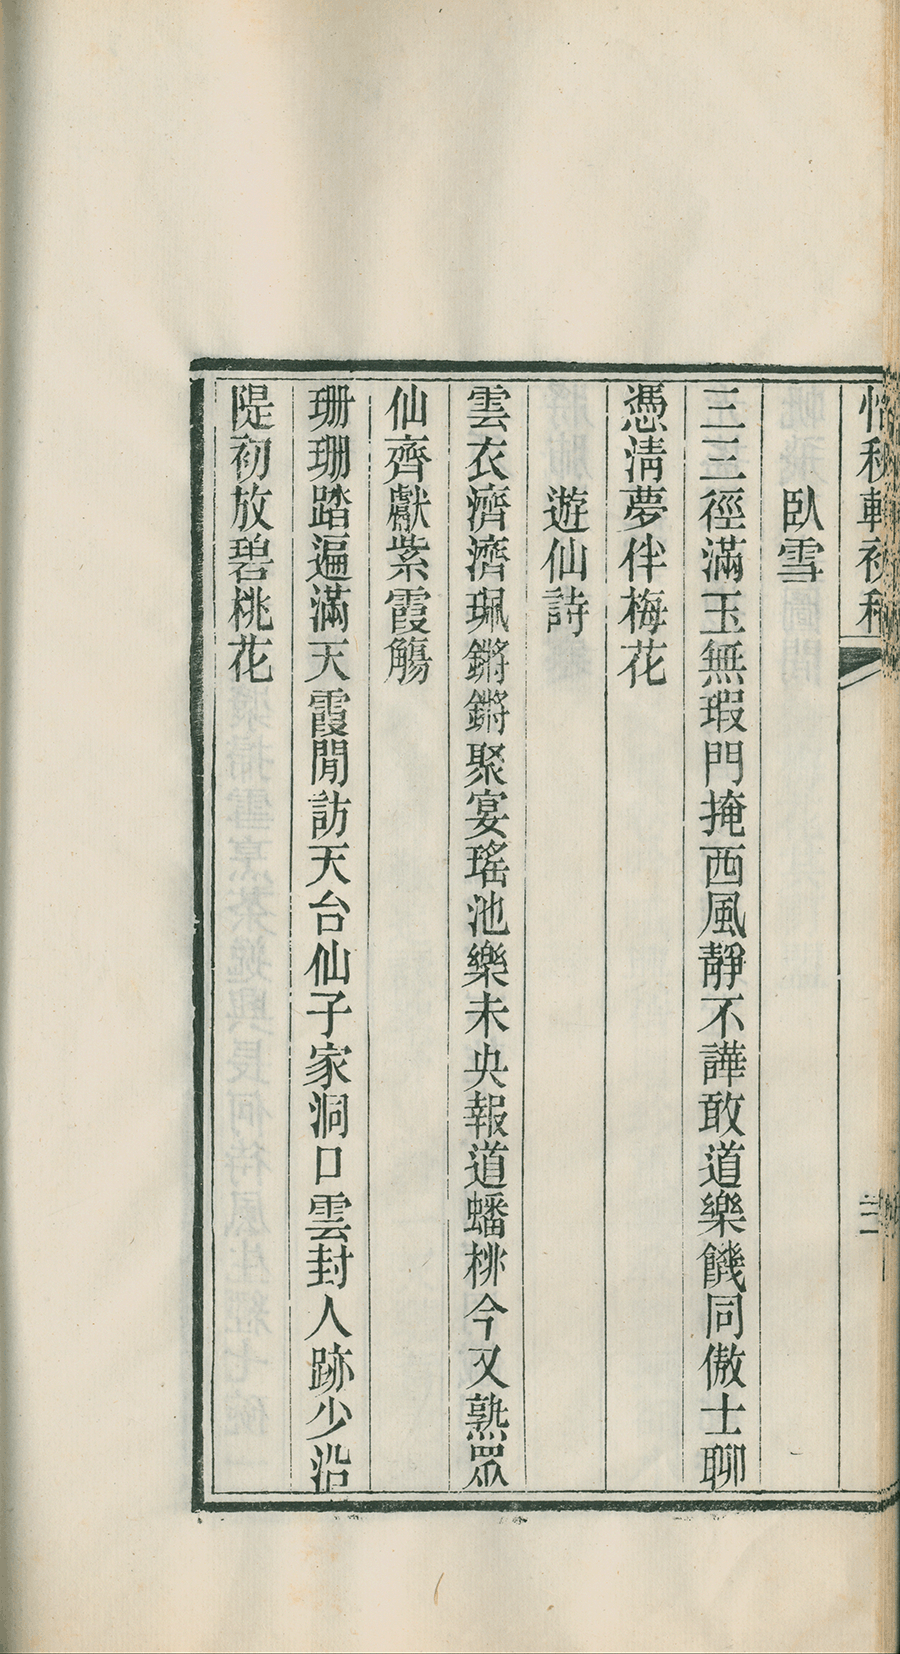 秋軒初稿
臥雪
三三徑滿玉無瑕門掩西風靜不譁敢道樂饑同傲士聊
憑清夢伴梅花
遊仙詩
雲衣濟濟珮鏘鏘聚宴瑤池樂未央報道蟠桃今又熟眾
仙齊獻紫霞觴
珊珊踏遍滿天霞閒訪天台仙子家洞口雲封人跡少沿
隄初放碧桃花